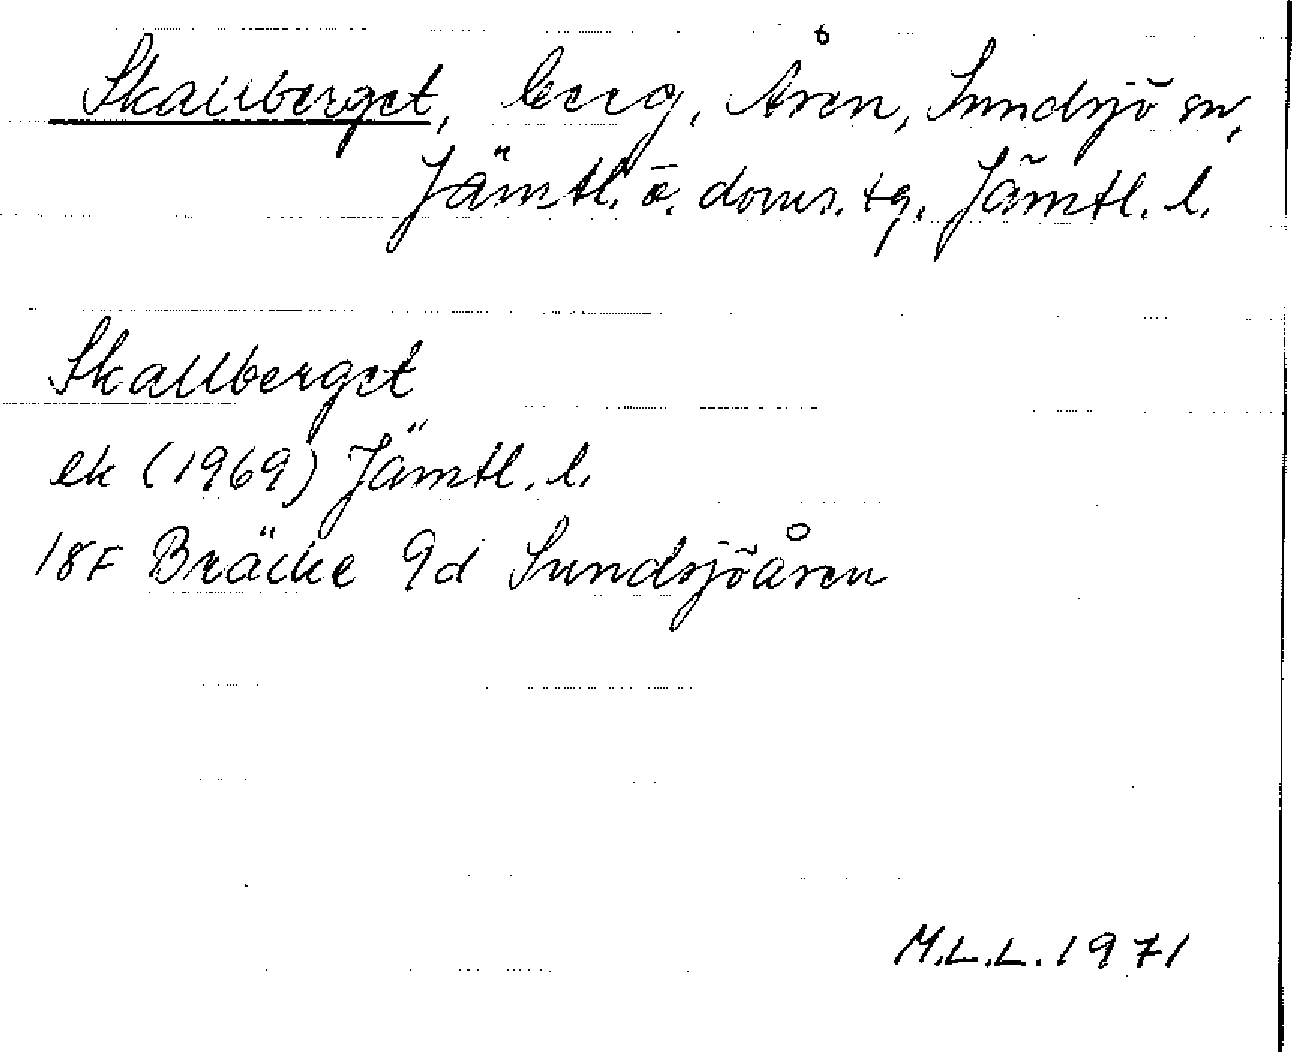 Skallberget, berg, Åsen, Sundsjö sn,
Jämtl. ö. doms. tg, Jämtl. l.
Skallberget
ek (1969) Jämtl. l.
18F Bräcke 9d Sundsjöåsen
M.L.L. 1971